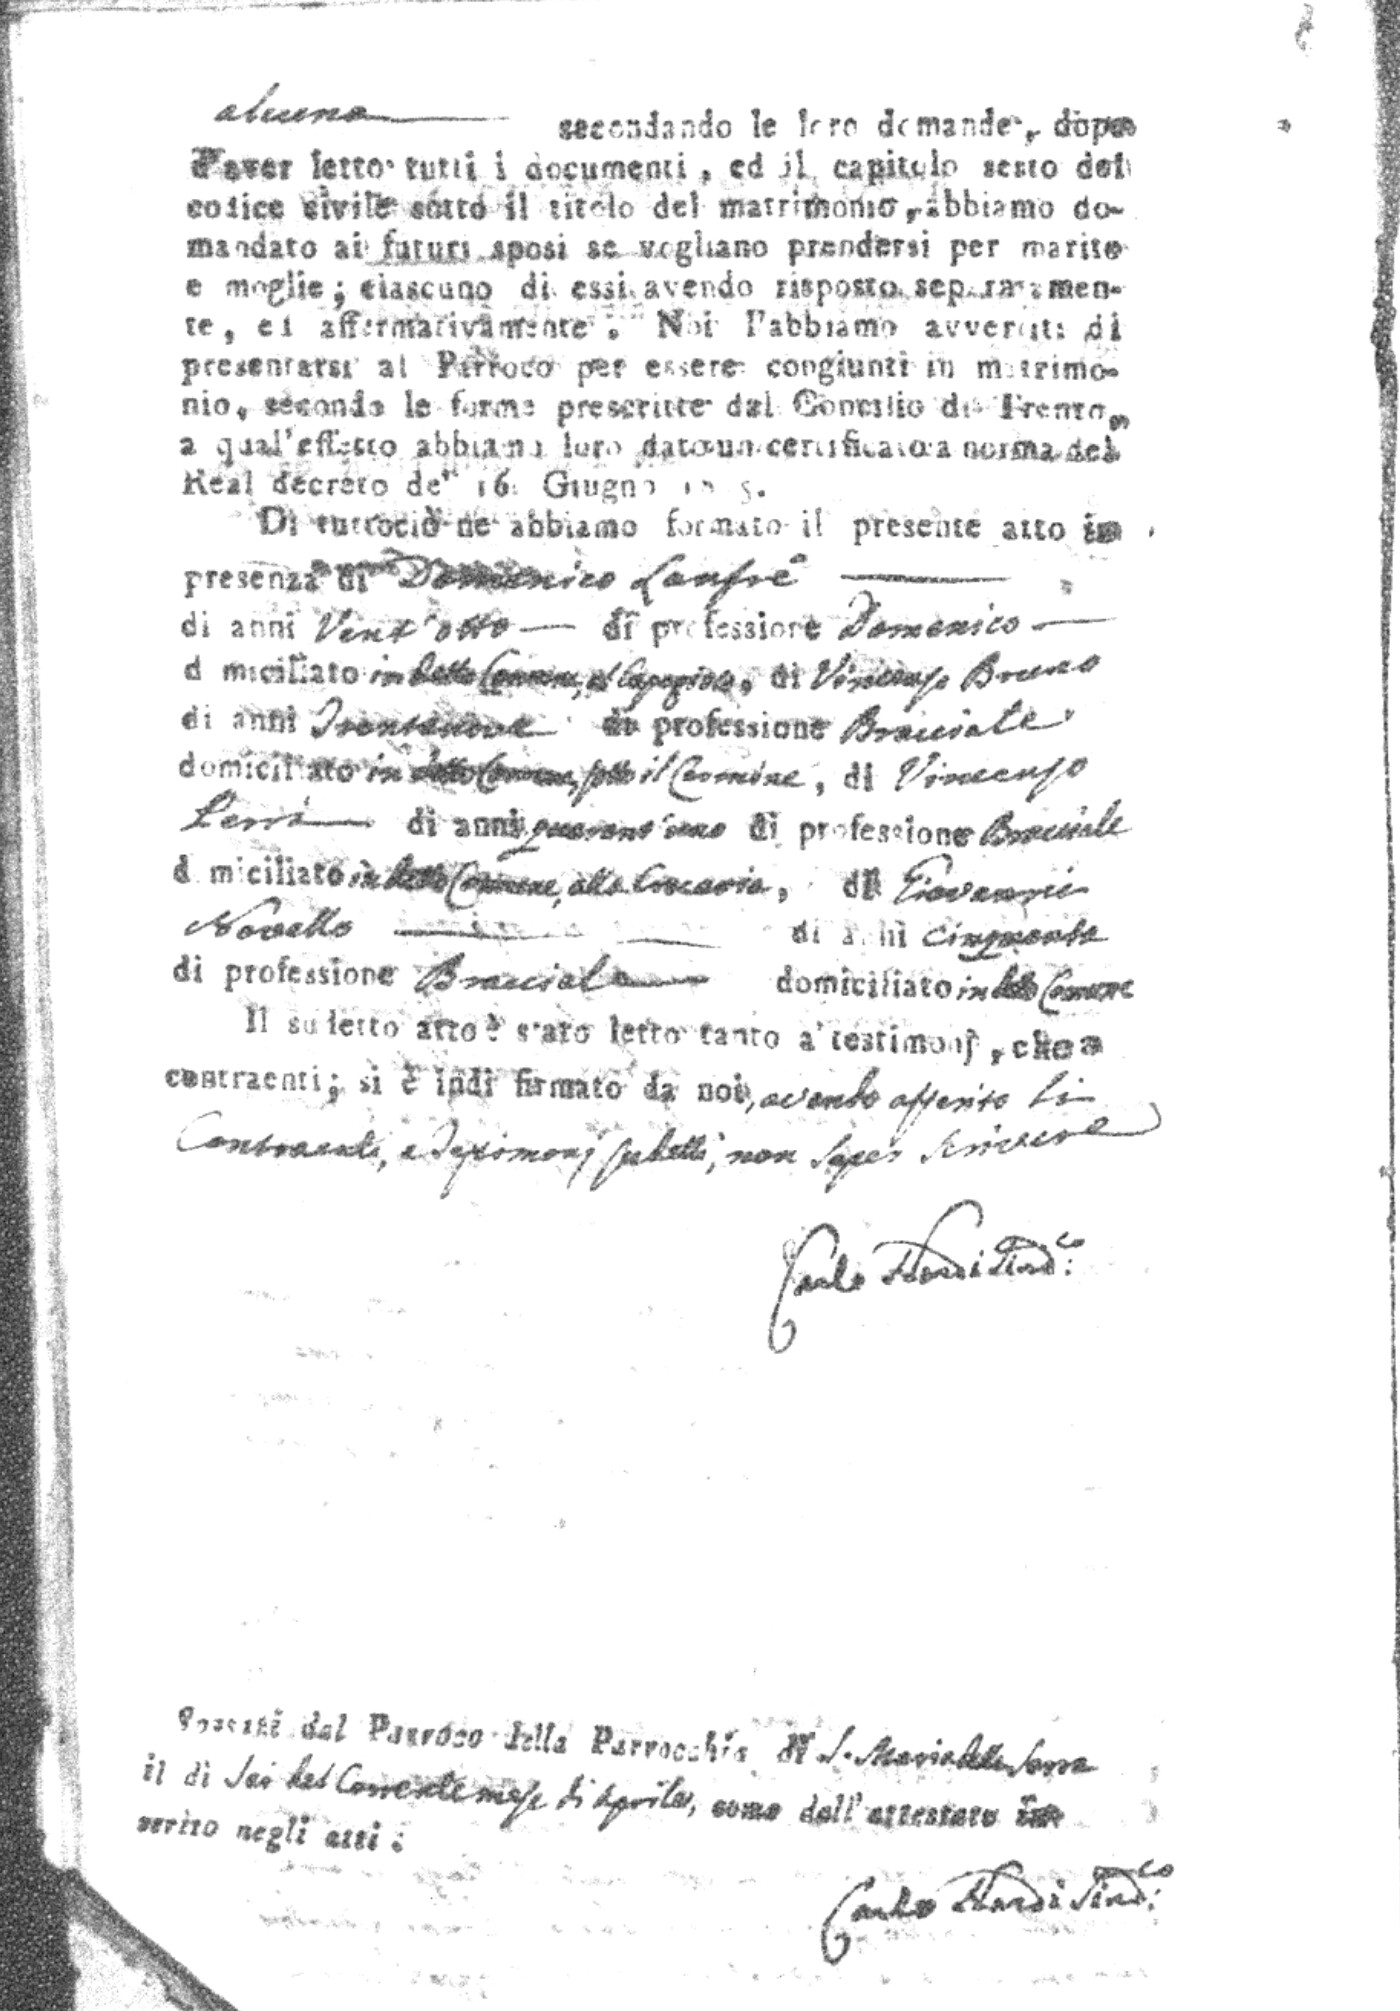 alcuna secondando le loro domande, dopo
d'aver letto tutti i documenti, ed il capitolo sesto del
codice civile sotto il titolo del matrimonio, abbiamo do-
mandato ai futuri sposi se vogliano prendersi per marito
e moglie; ciascuno di essi avendo risposto separatamen-
te, ed affermativamente: Noi l'abbiamo avvertiti di
presentarsi al Parroco per essere congiunti in matrimo-
nio, secondo le forme prescritte dal Concilio di Trento,
a qual'effetto abbiamo loro dato un certificato a norma del
Real decreto de' 16 Giugno
Di tuttociò ne abbiamo formato il presente atto in
presenza di Domenico Lanfrè
di anni Vent'otto di professione Domenico
domiciliato in detto Comune, di Vincenzo Bruno
di anni Trentanove di professione Bracciale
domiciliato in detto Comune, sotto il Carmine, di Vincenzo
di anni quarant'uno di professione Bracciale
domiciliato in detto Comune, alla di Giovanni
Novello di anni cinquanta
di professione Bracciale domiciliato in detto Comune
Il sudetto atto è stato letto tanto a' testimonj, che a
contraenti; si è indi firmato da noi, avendo asserito li
Contraenti, e Testimonj sudetti, non saper scrivere
Carlo Sind.co
Sposati dal Parroco della Parrocchia di S. Maria della Serra
il dì Sei del Corrente mese di Aprile, come dall'attestato in
serito negli atti:
Carlo Sind.co